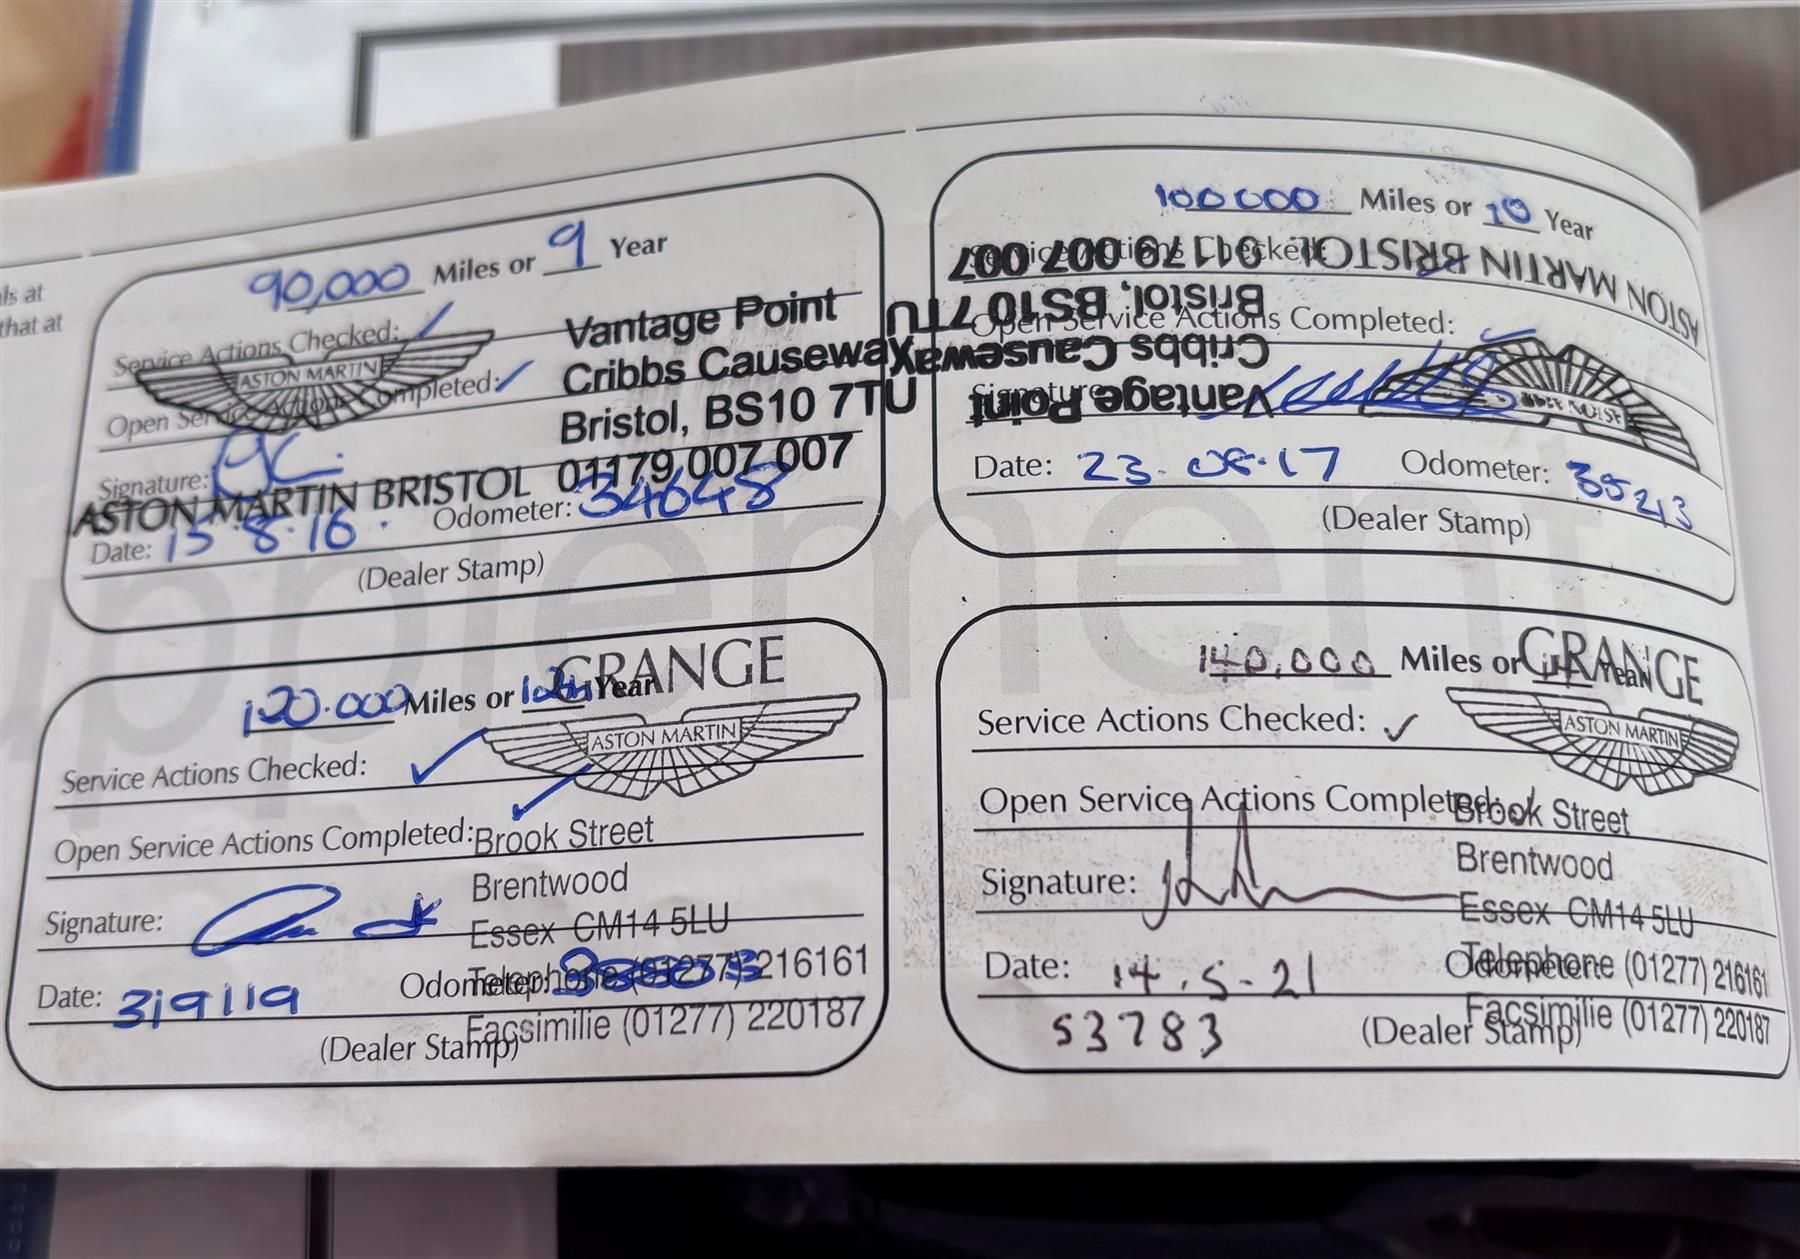 ls at
that at
90,000 Miles or 9 Year
Service Actions Checked: ✓
Open Service Actions Completed: ✓
Signature:
Date: 15.8.16. Odometer: 34648
(Dealer Stamp)
ASTON MARTIN
Vantage Point
Cribbs Causeway
Bristol, BS10 7TU
ASTON MARTIN BRISTOL 01179 007 007
100000 Miles or 10 Year
Service Actions Checked:
Open Service Actions Completed:
Signature:
Date: 23.08.17 Odometer: 35213
(Dealer Stamp)
ASTON MARTIN
Vantage Point
Cribbs Causeway
Bristol, BS10 7TU
ASTON MARTIN BRISTOL 01179 007 007
120.000 Miles or Year
Service Actions Checked: ✓
Open Service Actions Completed: ✓
Signature:
Date: 3/9/19 Odometer:
(Dealer Stamp)
GRANGE
ASTON MARTIN
Brook Street
Brentwood
Essex CM14 5LU
Telephone (01277) 216161
Facsimilie (01277) 220187
140,000 Miles or 14 Year
Service Actions Checked: ✓
Open Service Actions Completed: ✓
Signature:
Date: 14.5-21 Odometer:
53783 (Dealer Stamp)
GRANGE
ASTON MARTIN
Brook Street
Brentwood
Essex CM14 5LU
Telephone (01277) 216161
Facsimilie (01277) 220187
upplement